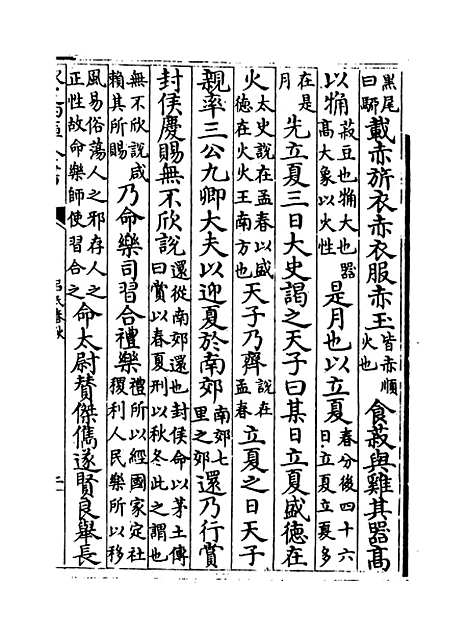 黑尾曰駵載赤旂衣赤衣服赤玉皆赤順火也食菽與雞其器高
以觕菽豆也觕大也器高大象以火性是月也以立夏春分後四十六日立夏立夏多
在是月先立夏三日大史謁之天子曰某日立夏盛德在
火太史說在孟春以盛德在火火王南方也天子乃齊說在孟春立夏之日天子
親率三公九卿大夫以迎夏於南郊南郊七里之郊還乃行賞
封侯慶賜無不欣說還從南郊還也封侯命以茅土傳曰賞以春夏刑以秋冬此之謂也
無不欣說咸賴其所賜乃命樂司習合禮樂禮所以經國家定社稷利人民樂所以移
風易俗蕩人之邪存人之正性故命樂師使習合之命太尉贊傑儁遂賢良舉長
呂氏春秋